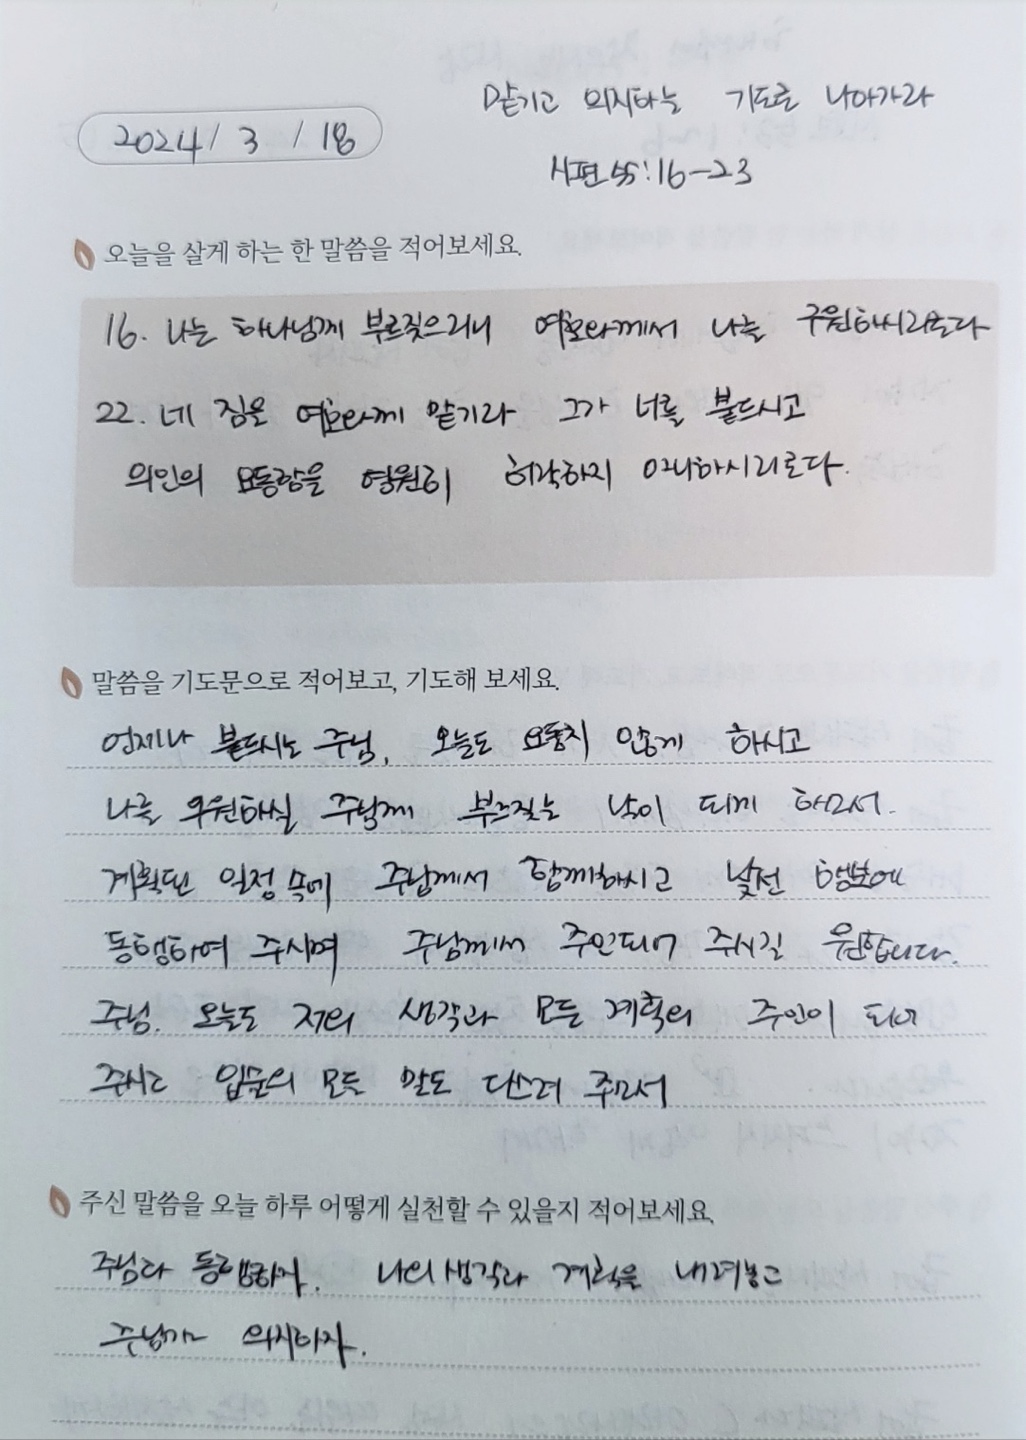 맡기고 의지하는 기도로 나아가라
2024 / 3 / 18
시편 55:16-23
오늘을 살게 하는 한 말씀을 적어보세요.
16. 나는 하나님께 부르짖으리니 여호와께서 나를 구원하시리로다
22. 네 짐을 여호와께 맡기라 그가 너를 붙드시고
의인의 요동함을 영원히 허락하지 아니하시리로다.
말씀을 기도문으로 적어보고, 기도해 보세요.
언제나 붙드시는 주님, 오늘도 요동치 않게 하시고
나를 구원하실 주님께 부르짖는 날이 되게 하소서.
계획된 일정 속에 주님께서 함께하시고 낯선 행보에
동행하여 주시며 주님께서 주인되어 주시길 원합니다.
주님. 오늘도 저의 생각과 모든 계획의 주인이 되어
주시고 입술의 모든 말도 다스려 주소서
주신 말씀을 오늘 하루 어떻게 실천할 수 있을지 적어보세요.
주님과 동행하자. 나의 생각과 계획을 내려놓고
주님만 의지하자.